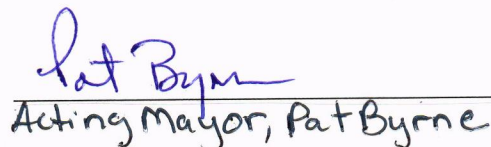 Pat Byrne
Acting Mayor, Pat Byrne